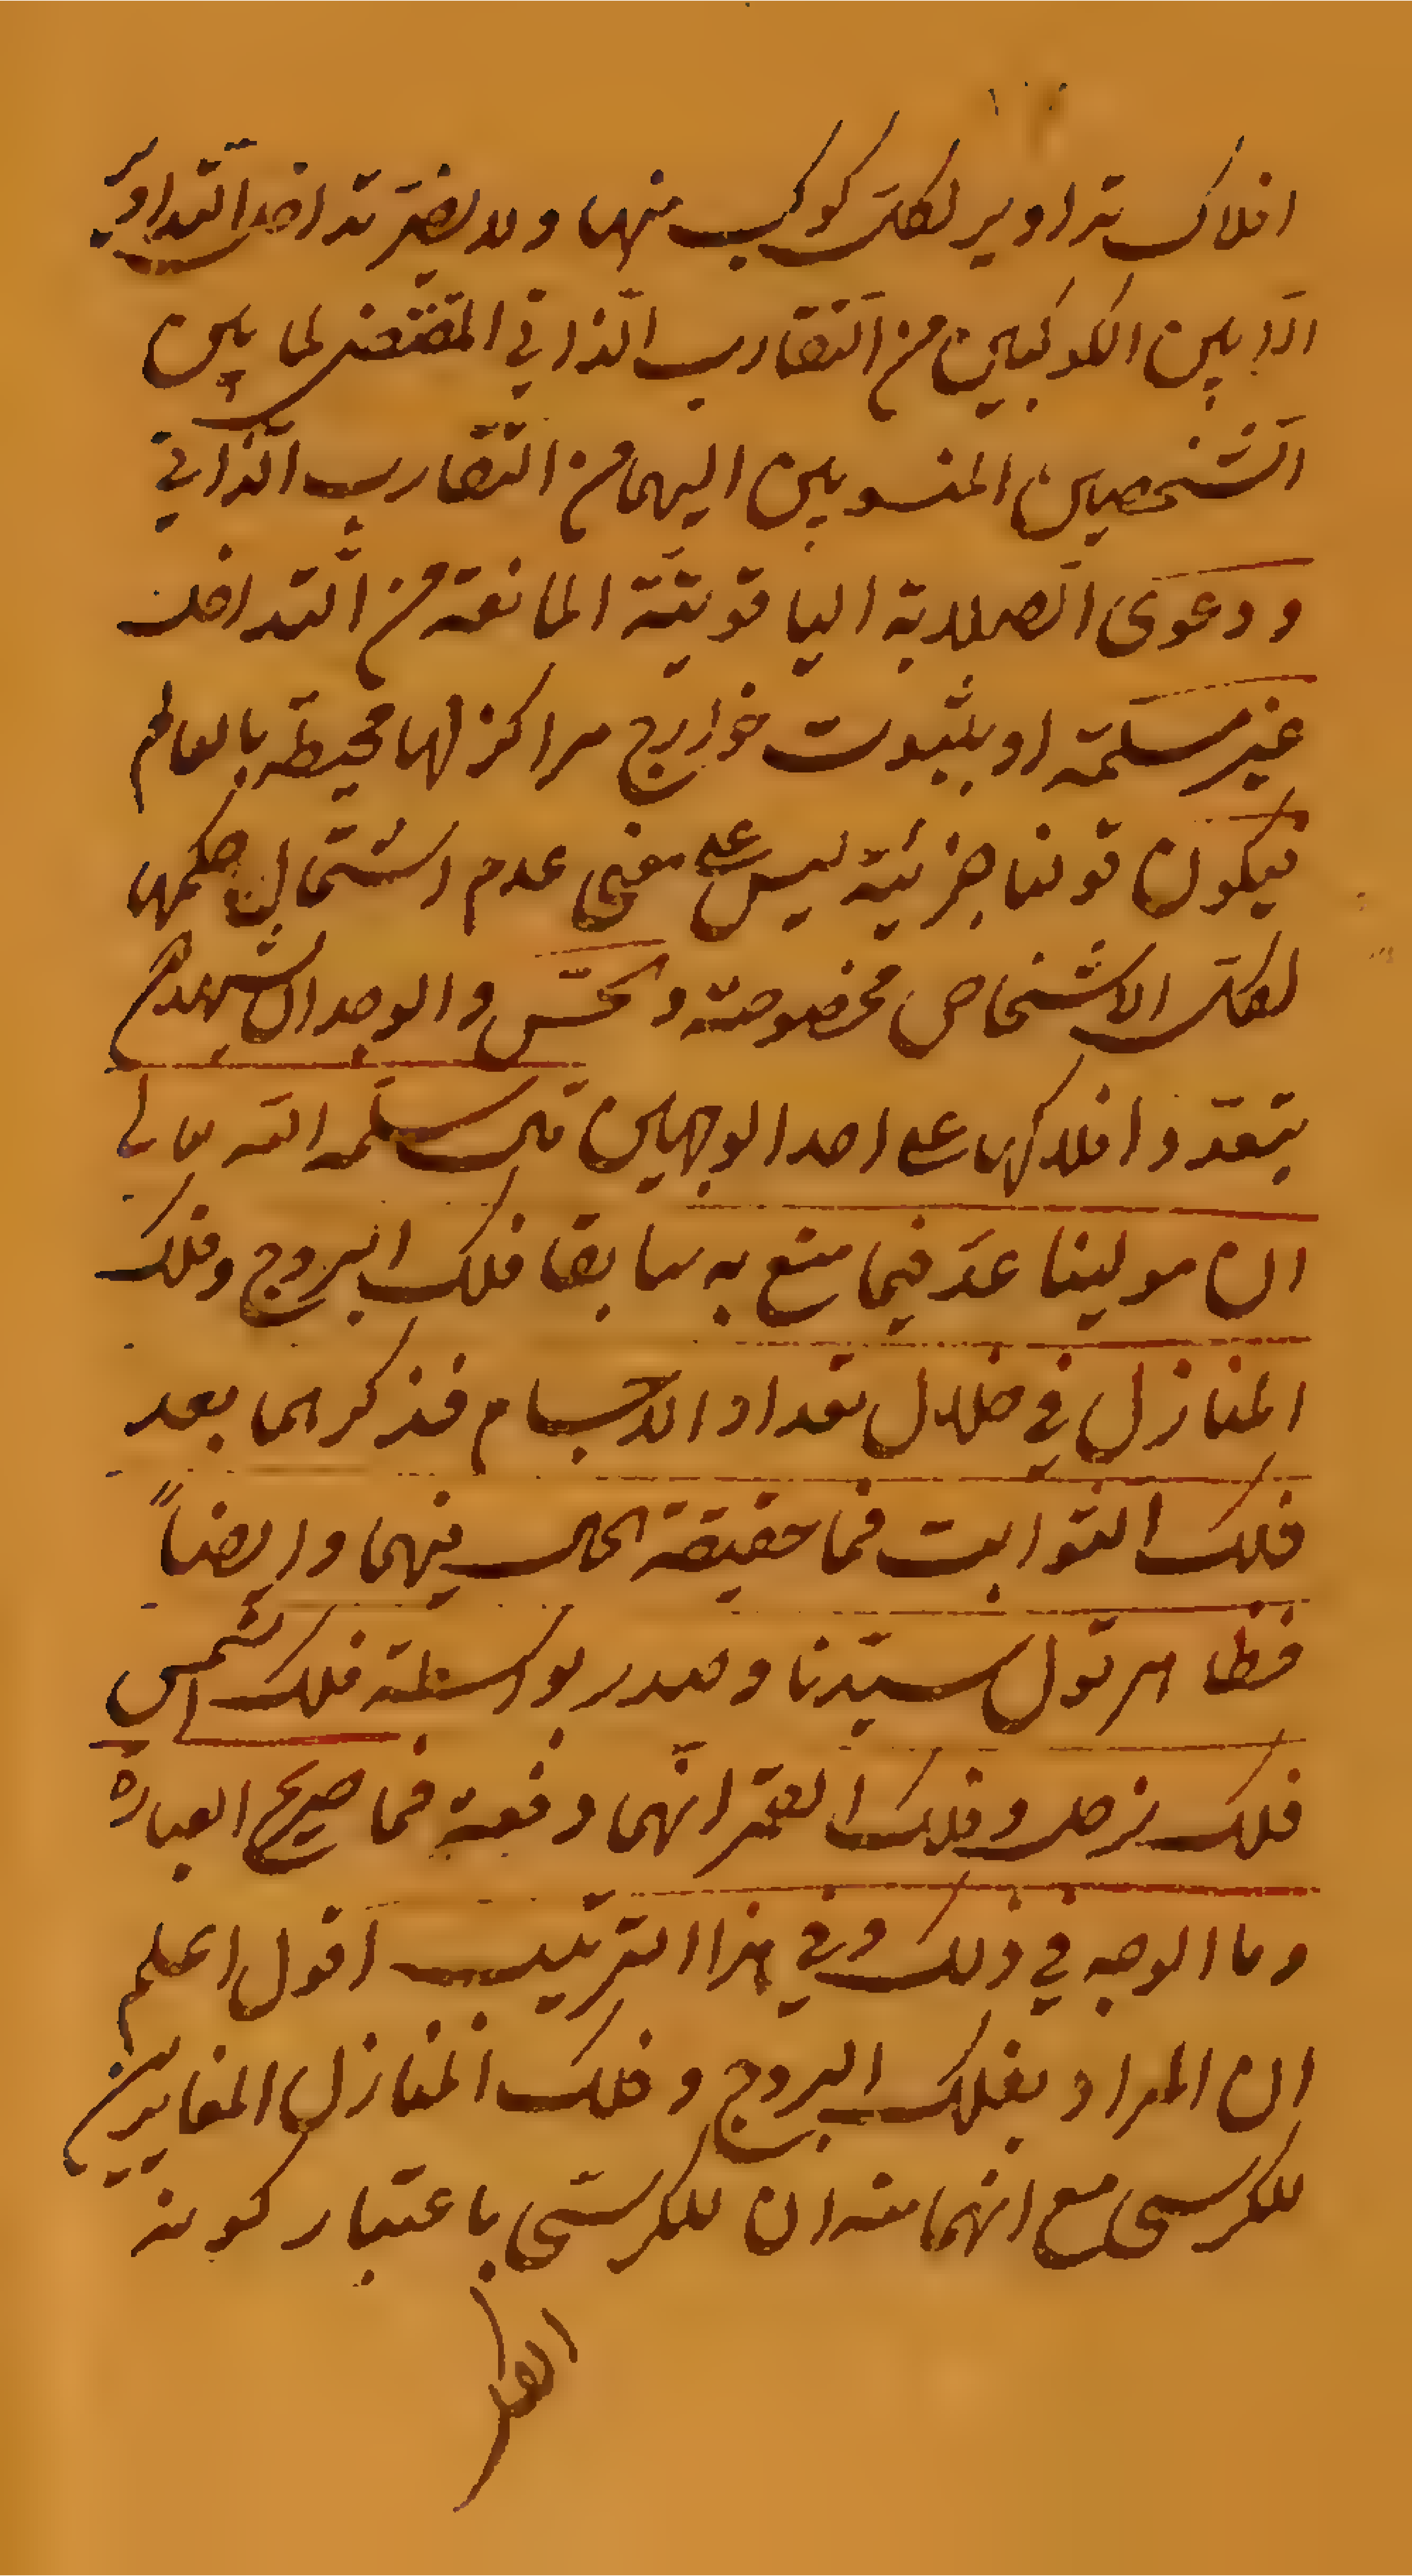 افلاك تداوير لكل كوكب منها ولا يضر تداخل التداوير
الا بين الكوكبين من التقارب الذاتي المقتضى لما بين
الشخصين المنسوبين اليهما من التقارب الذاتي
ودعوى الصلابة الياقوتية المانعة من التداخل
غير مسلمة او بثبوت خوارج مراكز لها محيطة بالعالم
فيكون قولنا جزئية ليس على معنى عدم اشتمال حكمها
لكل الاشخاص مخصوصة والحس والوجدان يشهد
بتعدد افلاكها على احد الوجهين قال سلمه الله تعالى
ان مولينا عد فيما منع به سابقا فلك البروج وفلك
المنازل في خلال تعداد الاجسام فذكرهما بعد
فلك الثوابت فما حقيقة الحال فيهما وايضاً
فظاهر قول سيدنا وصدر بواسطة فلك الشمس
فلك زحل وفلك القمر انهما دفعة فما صريح العبارة
وما الوجه في ذلك وفي هذا الترتيب اقول اعلم
ان المراد بفلك البروج وفلك المنازل المغايرين
للكرسي مع انهما منه ان للكرسي باعتبار كونه